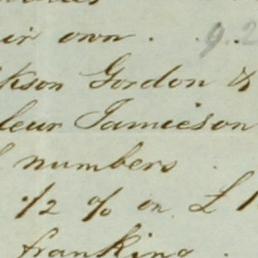 own . . 9.2
kson Gordon &
leur Jamieson
numbers .
1/2 % on £1
franking .